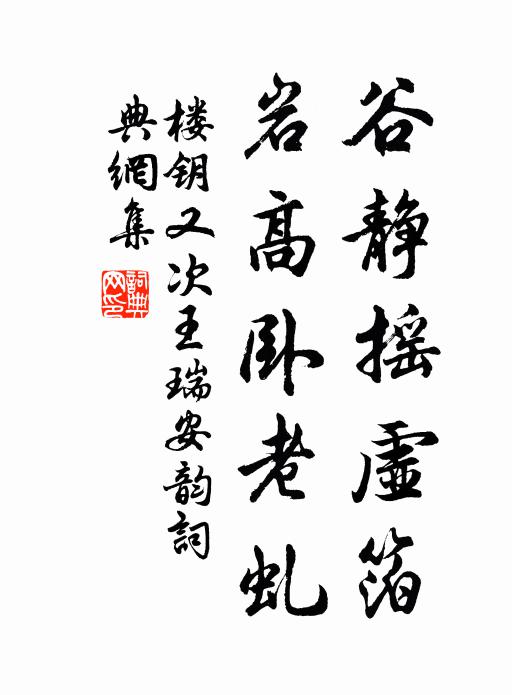 谷静摇虚箔
岩高卧老虬
楼钥又次王瑞安韵詞
典網集
詞典网印